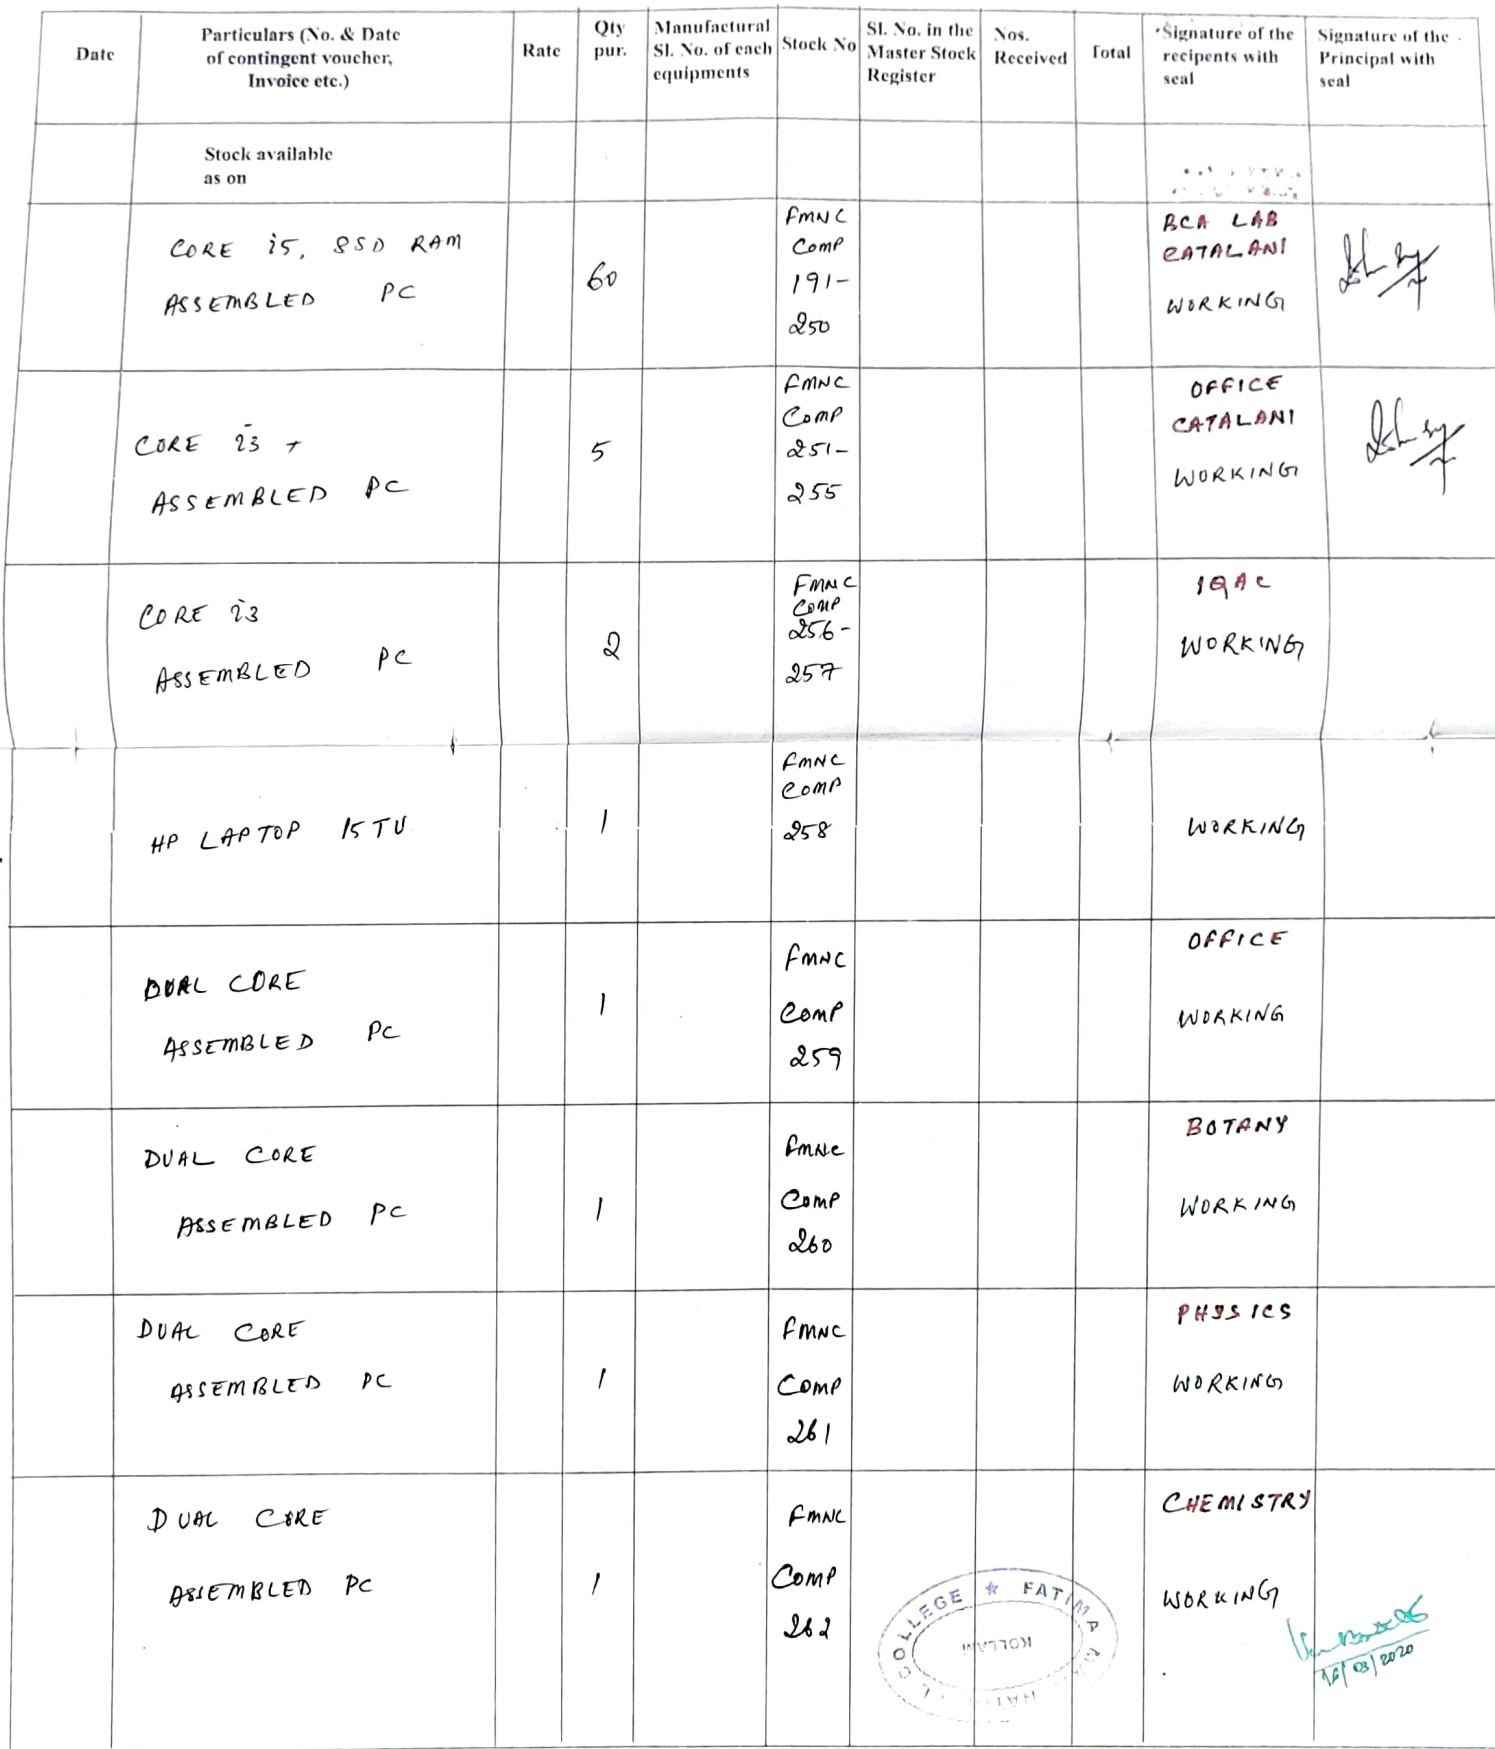 Date
Particulars (No. & Date
of contingent voucher,
Invoice etc.)
Rate
Qty
pur.
Manufactural
Sl. No. of each
equipments
Stock No
Sl. No. in the
Master Stock
Register
Nos.
Received
Total
Signature of the
recipents with
seal
Signature of the
Principal with
seal
Stock available
as on
CORE i5, SSD RAM
ASSEMBLED PC
60
FMNC
COMP
191-
250
BCA LAB
CATALANI
WORKING
CORE i3 +
ASSEMBLED PC
5
FMNC
COMP
251-
255
OFFICE
CATALANI
WORKING
CORE i3
ASSEMBLED PC
2
FMNC
COMP
256-
257
IQAC
WORKING
HP LAPTOP 15 TU
1
FMNC
COMP
258
WORKING
DUAL CORE
ASSEMBLED PC
1
FMNC
COMP
259
OFFICE
WORKING
DUAL CORE
ASSEMBLED PC
1
FMNC
COMP
260
BOTANY
WORKING
DUAL CORE
ASSEMBLED PC
1
FMNC
COMP
261
PHYSICS
WORKING
DUAL CORE
ASSEMBLED PC
1
FMNC
COMP
262
CHEMISTRY
WORKING
COLLEGE ★ FATIMA
KOLLAM
16/03/2020